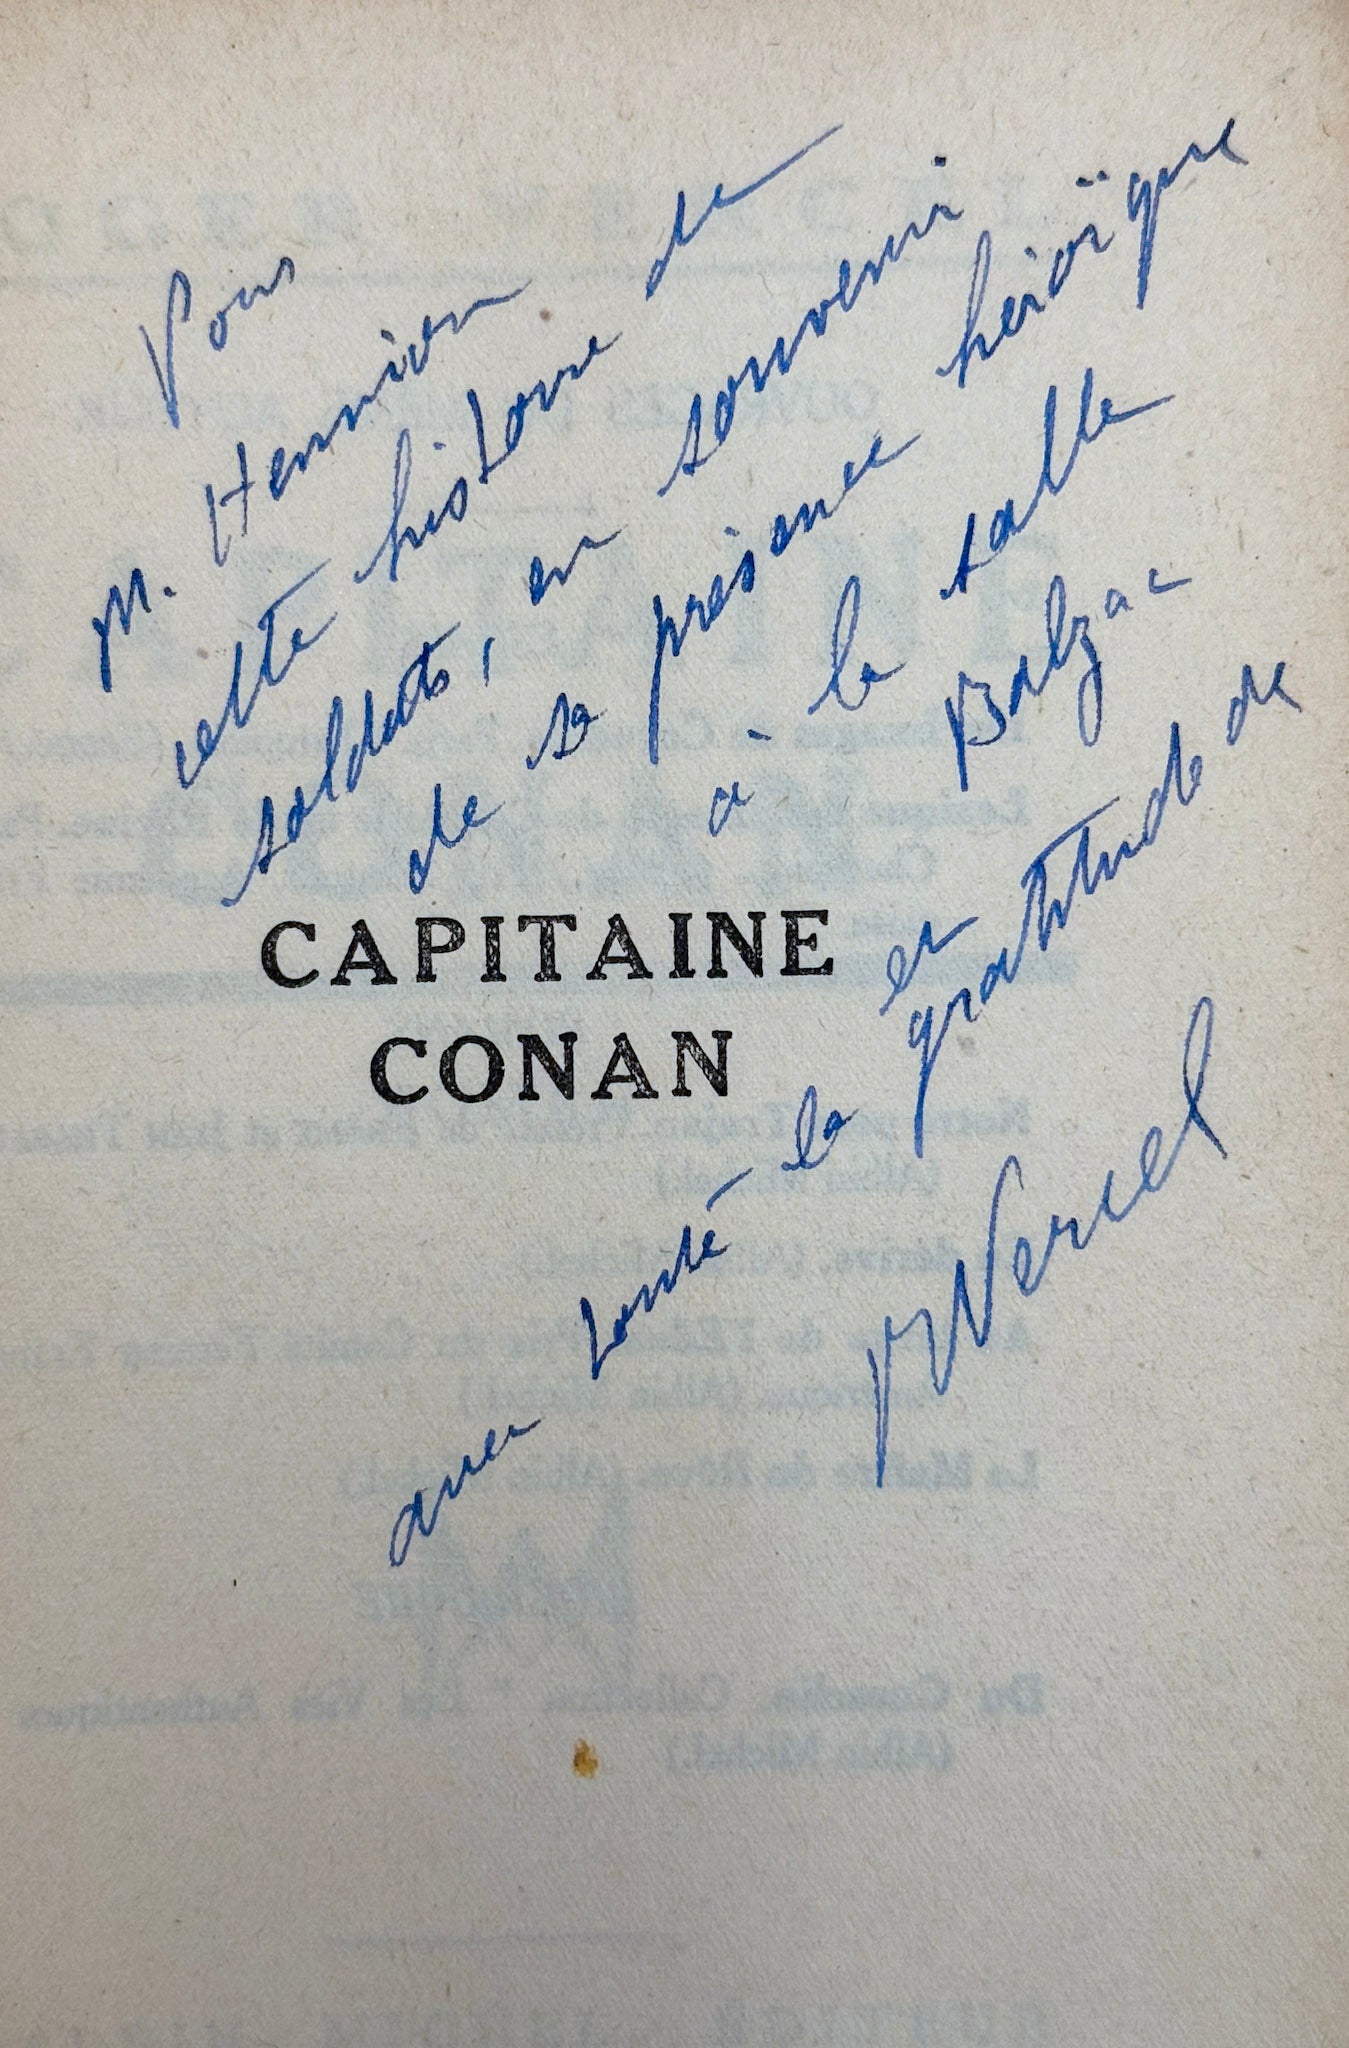 Pour
M. Hennion
cette histoire de
soldats, en souvenir
de sa présence héroïque
à la salle
Balzac
et
avec toute la gratitude de
RVercel
CAPITAINE
CONAN